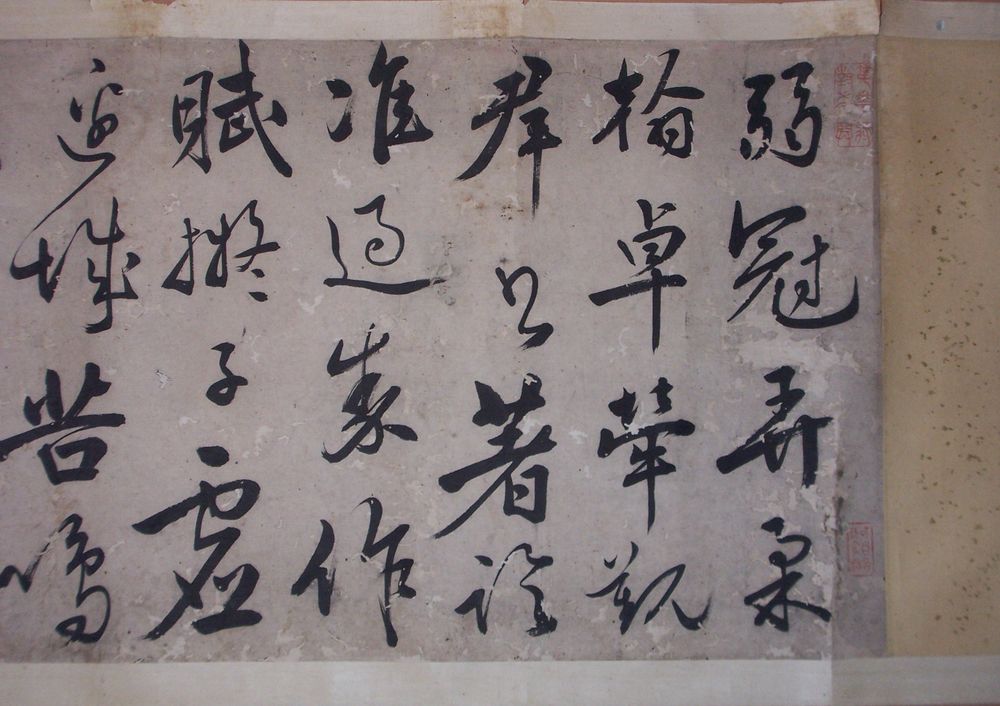 弱冠弄柔
翰卓犖觀
群書著論
准過秦作
賦擬子虛
邊城苦鳴